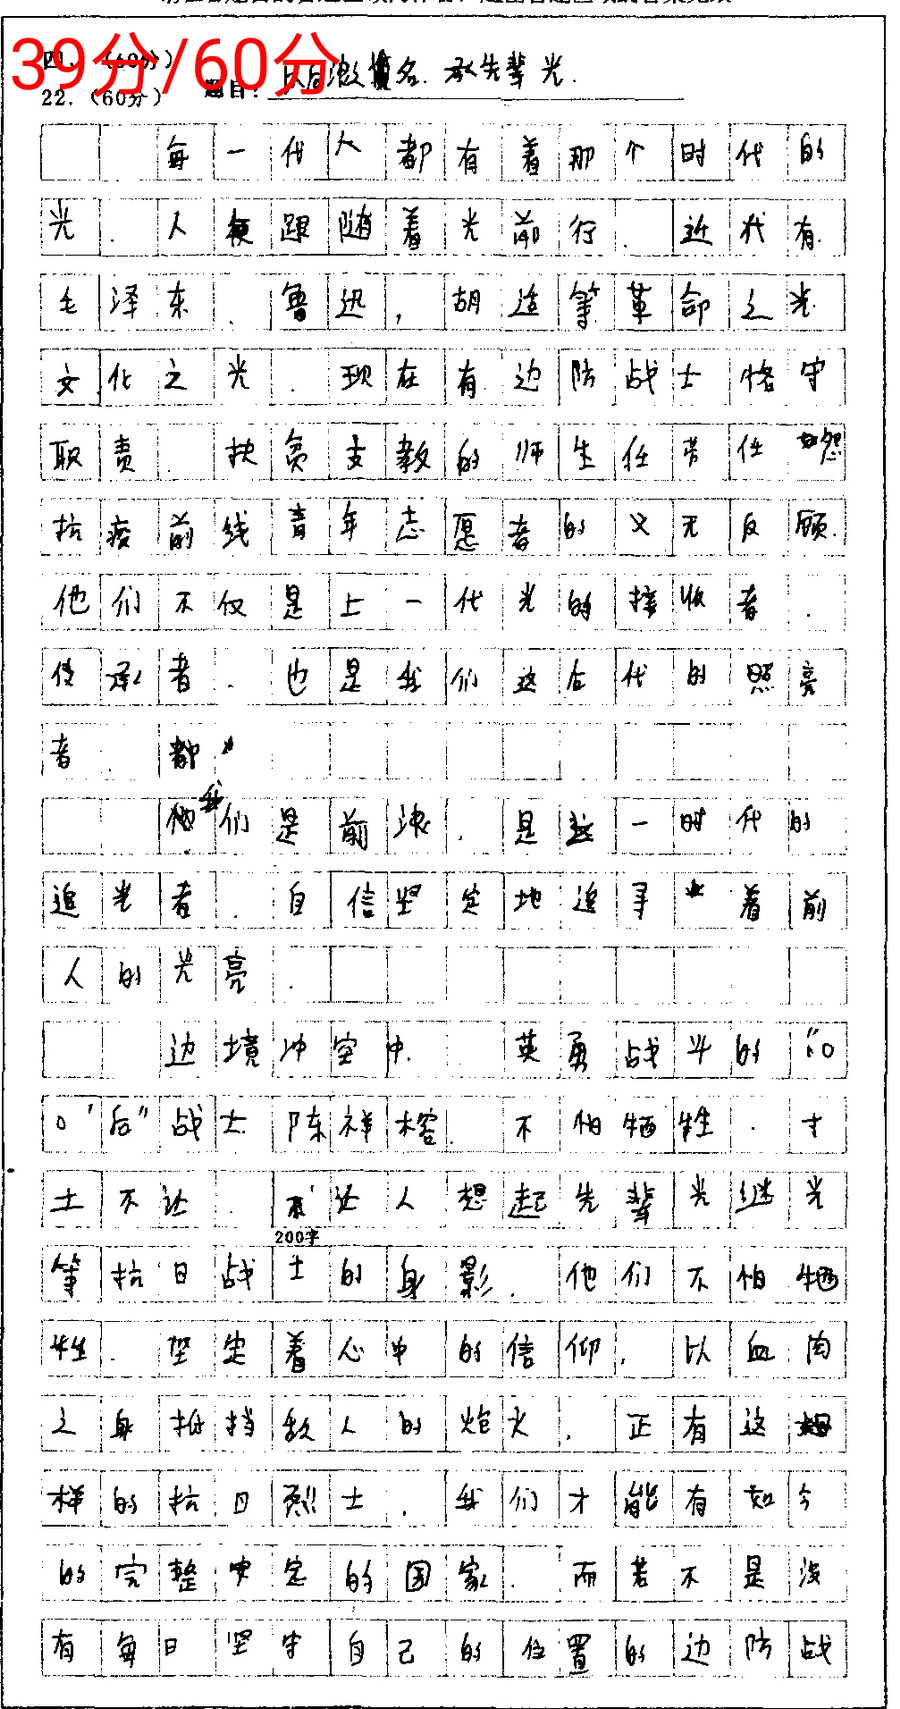 39分/60分
四、（60分）
22.（60分） 题目： 以后浪名.承先辈光.
每一代人都有着那个时代的
光.人便跟随着光前行.近代有
毛泽东.鲁迅,胡适等革命之光
文化之光.现在有边防战士恪守
职责.扶贫支教的师生任劳任怨
抗疫前线青年志愿者的义无反顾.
他们不仅是上一代光的接收者.
传承者.也是我们这后代的照亮
者.都
我们是前浪.是这一时代的
追光者.自信坚定地追寻着前
人的光亮.
边境冲突中.英勇战斗的“0
0'后”战士陈祥榕.不怕牺牲.寸
土不让.让人想起先辈光继光
200字
等抗日战士的身影.他们不怕牺
牲.坚定着心中的信仰.以血肉
之身抵挡敌人的炮火.正有这
样的抗日烈士.我们才能有如今
的完整安定的国家.而若不是没
有每日坚守自己的位置的边防战